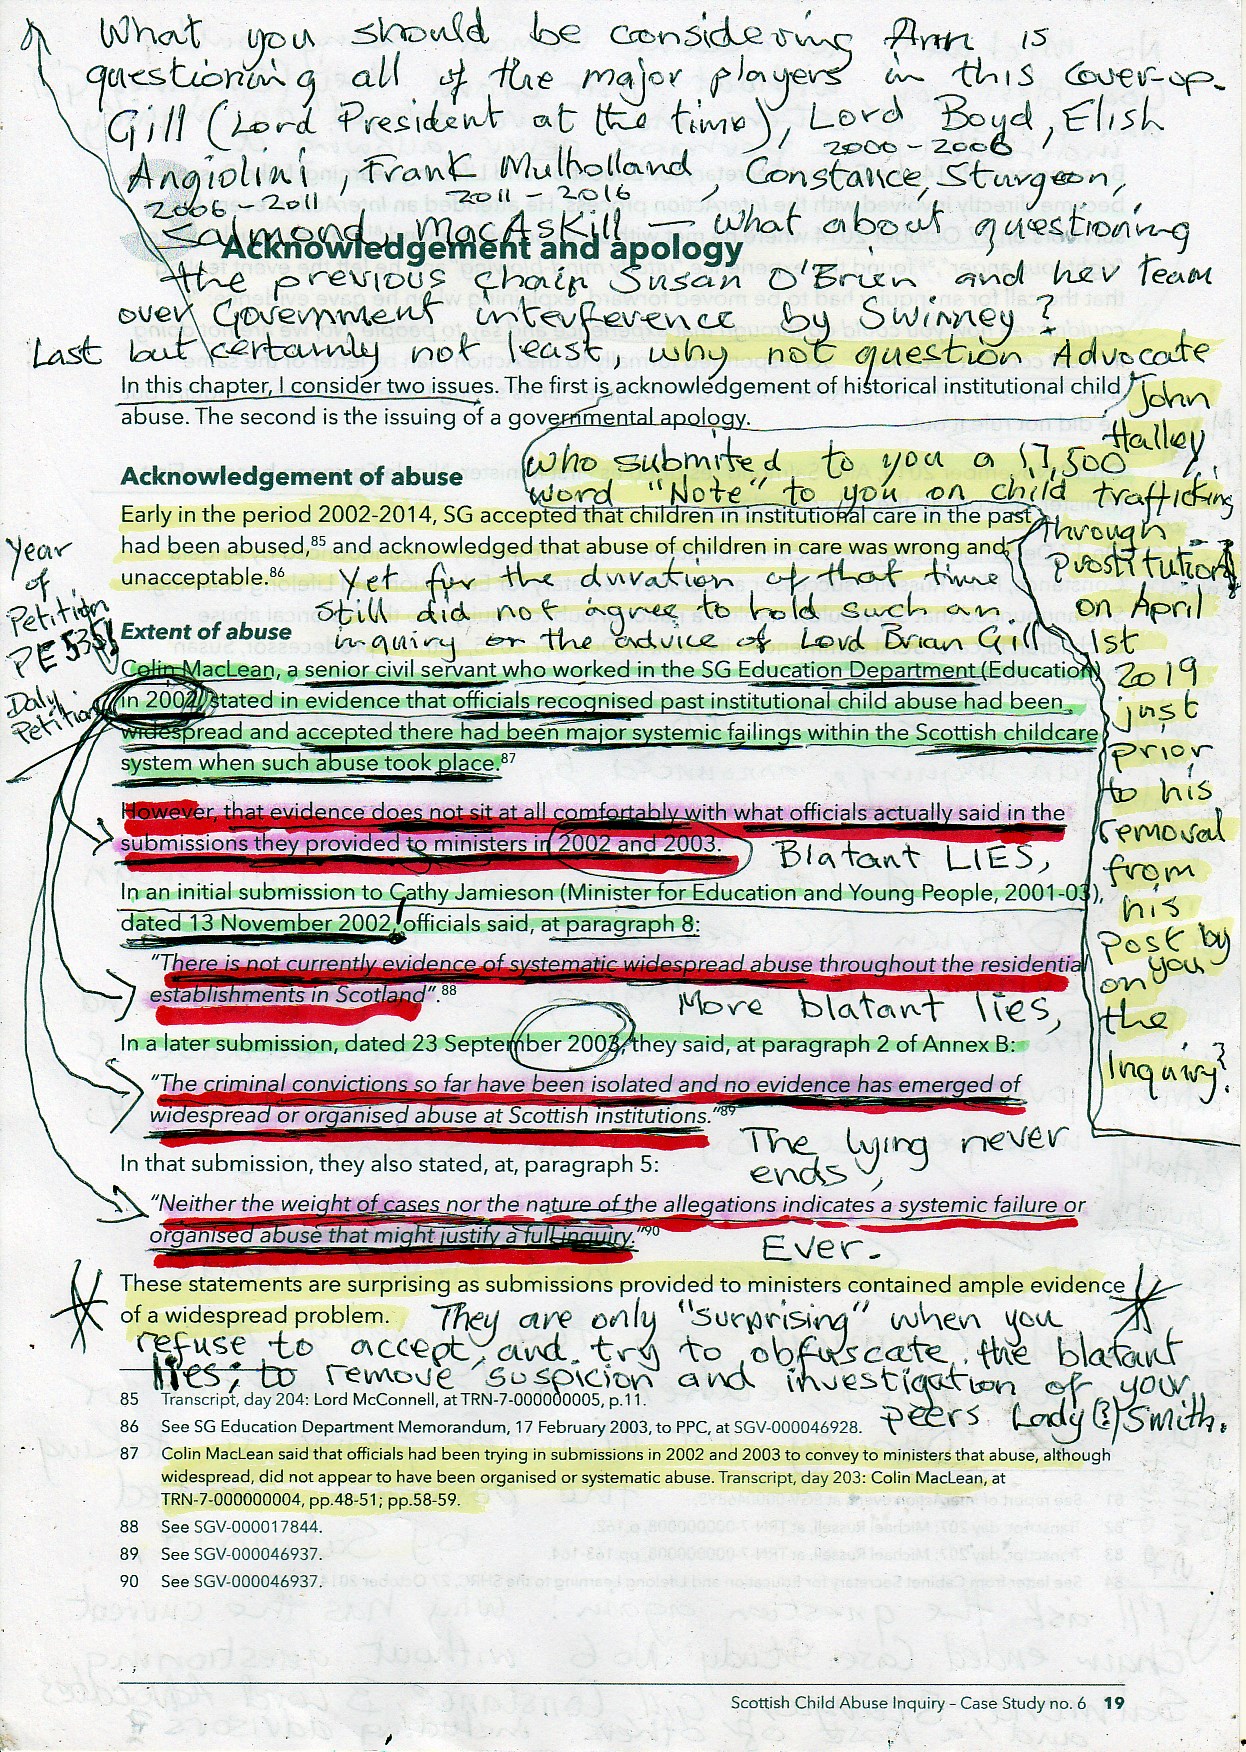 What you should be considering Ann is
questioning all of the major players in this cover-up.
Gill (Lord President at the time), Lord Boyd, Elish
2000 - 2006
Angiolini, Frank Mulholland, Constance, Sturgeon,
2006 - 2011 2011 - 2016
Salmond, MacAskill - what about questioning
Acknowledgement and apology
the previous chair Susan O'Brien and her team
over Government interference by Swinney?
Last but certainly not least why not question Advocate
John
Halley
who submited to you a 17,500
word "Note" to you on child trafficking
through
prostitution
on April
1st
2019
just
prior
to his
removal
from
his
post by
you
on
the
Inquiry?
In this chapter, I consider two issues. The first is acknowledgement of historical institutional child
abuse. The second is the issuing of a governmental apology.
Acknowledgement of abuse
Early in the period 2002-2014, SG accepted that children in institutional care in the past
had been abused,85 and acknowledged that abuse of children in care was wrong and
unacceptable.86
Yet for the duration of that time
still did not agree to hold such an
inquiry on the advice of Lord Brian Gill
Year
of
Petition
PE 535
Daly
Petition
Extent of abuse
Colin MacLean, a senior civil servant who worked in the SG Education Department (Education)
in 2002, stated in evidence that officials recognised past institutional child abuse had been
widespread and accepted there had been major systemic failings within the Scottish childcare
system when such abuse took place.87
However, that evidence does not sit at all comfortably with what officials actually said in the
submissions they provided to ministers in 2002 and 2003.
Blatant LIES,
In an initial submission to Cathy Jamieson (Minister for Education and Young People, 2001-03),
dated 13 November 2002, officials said, at paragraph 8:
"There is not currently evidence of systematic widespread abuse throughout the residential
establishments in Scotland".88
More blatant lies,
In a later submission, dated 23 September 2003, they said, at paragraph 2 of Annex B:
"The criminal convictions so far have been isolated and no evidence has emerged of
widespread or organised abuse at Scottish institutions."89
The lying never
ends,
In that submission, they also stated, at, paragraph 5:
"Neither the weight of cases nor the nature of the allegations indicates a systemic failure or
organised abuse that might justify a full inquiry."90
Ever.
These statements are surprising as submissions provided to ministers contained ample evidence
of a widespread problem.
They are only "surprising" when you
refuse to accept, and try to obfuscate the blatant
lies, to remove suspicion and investigation of your
peers Lady(?) Smith.
85 Transcript, day 204: Lord McConnell, at TRN-7-000000005, p.11.
86 See SG Education Department Memorandum, 17 February 2003, to PPC, at SGV-000046928.
87 Colin MacLean said that officials had been trying in submissions in 2002 and 2003 to convey to ministers that abuse, although
widespread, did not appear to have been organised or systematic abuse. Transcript, day 203: Colin MacLean, at
TRN-7-000000004, pp.48-51; pp.58-59.
88 See SGV-000017844.
89 See SGV-000046937.
90 See SGV-000046937.
Scottish Child Abuse Inquiry – Case Study no. 6 19